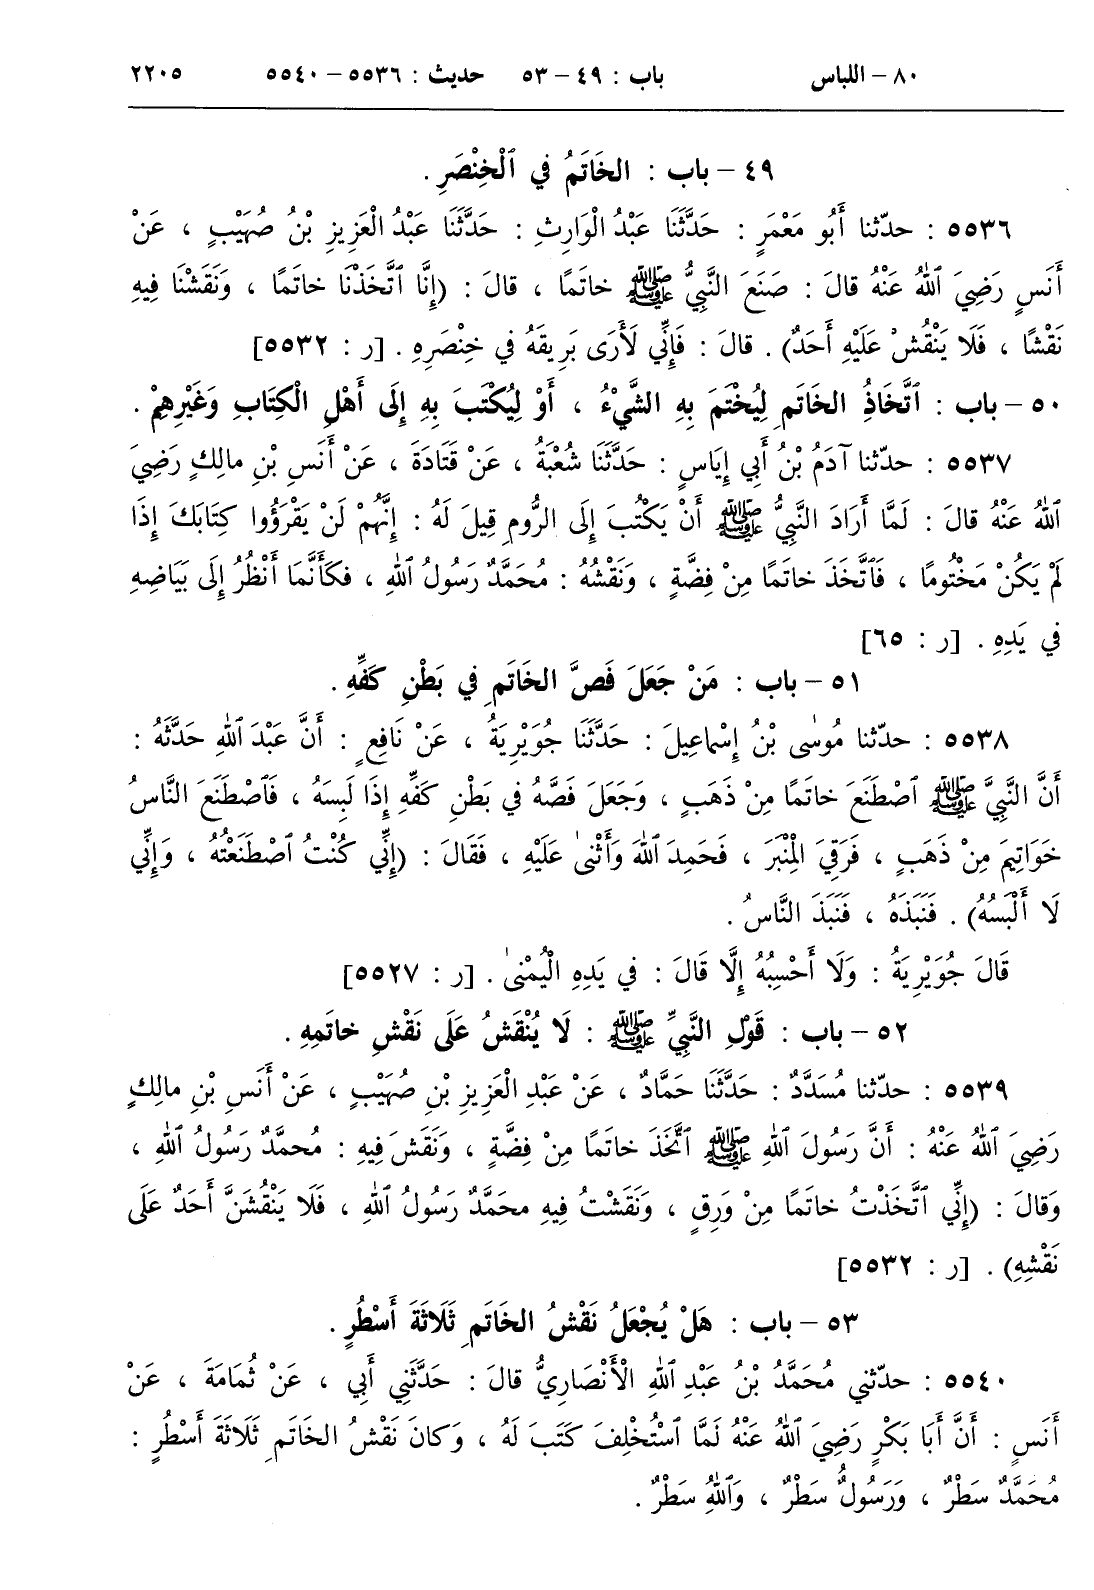 ٨٠ – اللباس باب : ٤٩ – ٥٣ حديث : ٥٥٣٦ – ٥٥٤٠ ٢٢٠٥
٤٩ – باب : الخَاتَمُ في ٱلْخِنْصَرِ .
٥٥٣٦ : حدّثنا أَبُو مَعْمَرٍ : حَدَّثَنَا عَبْدُ الْوَارِثِ : حَدَّثَنَا عَبْدُ الْعَزِيزِ بْنُ صُهَيْبٍ ، عَنْ
أَنَسٍ رَضِيَ ٱللهُ عَنْهُ قالَ : صَنَعَ النَّبِيُّ ﷺ خاتَمًا ، قالَ : (إِنَّا ٱتَّخَذْنَا خاتَمًا ، وَنَقَشْنَا فِيهِ
نَقْشًا ، فَلَا يَنْقُشْ عَلَيْهِ أَحَدٌ) . قالَ : فَإِنِّي لَأَرَى بَرِيقَهُ في خِنْصَرِهِ . [ر : ٥٥٣٢]
٥٠ – باب : ٱتِّخَاذُ الخَاتَمِ لِيُخْتَمَ بِهِ الشَّيْءُ ، أَوْ لِيُكْتَبَ بِهِ إِلَى أَهْلِ الْكِتَابِ وَغَيْرِهِمْ .
٥٥٣٧ : حدّثنا آدَمُ بْنُ أَبِي إِيَاسٍ : حَدَّثَنَا شُعْبَةُ ، عَنْ قَتَادَةَ ، عَنْ أَنَسِ بْنِ مالِكٍ رَضِيَ
ٱللهُ عَنْهُ قالَ : لَمَّا أَرَادَ النَّبِيُّ ﷺ أَنْ يَكْتُبَ إِلَى الرُّومِ قِيلَ لَهُ : إِنَّهُمْ لَنْ يَقْرَؤُوا كِتَابَكَ إِذَا
لَمْ يَكُنْ مَخْتُومًا ، فَٱتَّخَذَ خاتَمًا مِنْ فِضَّةٍ ، وَنَقْشُهُ : مُحَمَّدٌ رَسُولُ ٱللهِ ، فَكَأَنَّمَا أَنْظُرُ إِلَى بَيَاضِهِ
في يَدِهِ . [ر : ٦٥]
٥١ – باب : مَنْ جَعَلَ فَصَّ الخَاتَمِ في بَطْنِ كَفِّهِ .
٥٥٣٨ : حدّثنا مُوسٰى بْنُ إِسْماعِيلَ : حَدَّثَنَا جُوَيْرِيَةُ ، عَنْ نَافِعٍ : أَنَّ عَبْدَ ٱللهِ حَدَّثَهُ :
أَنَّ النَّبِيَّ ﷺ ٱصْطَنَعَ خاتَمًا مِنْ ذَهَبٍ ، وَجَعَلَ فَصَّهُ في بَطْنِ كَفِّهِ إِذَا لَبِسَهُ ، فَٱصْطَنَعَ النَّاسُ
خَوَاتِيمَ مِنْ ذَهَبٍ ، فَرَقِيَ الْمِنْبَرَ ، فَحَمِدَ ٱللهَ وَأَثْنىٰ عَلَيْهِ ، فَقَالَ : (إِنِّي كُنْتُ ٱصْطَنَعْتُهُ ، وَإِنِّي
لَا أَلْبَسُهُ) . فَنَبَذَهُ ، فَنَبَذَ النَّاسُ .
قَالَ جُوَيْرِيَةُ : وَلَا أَحْسِبُهُ إِلَّا قَالَ : في يَدِهِ الْيُمْنىٰ . [ر : ٥٥٢٧]
٥٢ – باب : قَوْلِ النَّبِيِّ ﷺ : لَا يُنْقَشُ عَلَى نَقْشِ خاتَمِهِ .
٥٥٣٩ : حدّثنا مُسَدَّدٌ : حَدَّثَنَا حَمَّادٌ ، عَنْ عَبْدِ الْعَزِيزِ بْنِ صُهَيْبٍ ، عَنْ أَنَسِ بْنِ مالِكٍ
رَضِيَ ٱللهُ عَنْهُ : أَنَّ رَسُولَ ٱللهِ ﷺ ٱتَّخَذَ خاتَمًا مِنْ فِضَّةٍ ، وَنَقَشَ فِيهِ : مُحمَّدٌ رَسُولُ ٱللهِ ،
وَقالَ : (إِنِّي ٱتَّخَذْتُ خاتَمًا مِنْ وَرِقٍ ، وَنَقَشْتُ فِيهِ محَمَّدٌ رَسُولُ ٱللهِ ، فَلَا يَنْقُشَنَّ أَحَدٌ عَلَى
نَقْشِهِ) . [ر : ٥٥٣٢]
٥٣ – باب : هَلْ يُجْعَلُ نَقْشُ الخَاتَمِ ثَلَاثَةَ أَسْطُرٍ .
٥٥٤٠ : حدّثني مُحَمَّدُ بْنُ عَبْدِ ٱللهِ الْأَنْصَارِيُّ قالَ : حَدَّثَنِي أَبِي ، عَنْ ثُمَامَةَ ، عَنْ
أَنَسٍ : أَنَّ أَبَا بَكْرٍ رَضِيَ ٱللهُ عَنْهُ لَمَّا ٱسْتُخْلِفَ كَتَبَ لَهُ ، وَكانَ نَقْشُ الخَاتَمِ ثَلَاثَةَ أَسْطُرٍ :
مُحَمَّدٌ سَطْرٌ ، وَرَسُولُ سَطْرٌ ، وَٱللهِ سَطْرٌ .